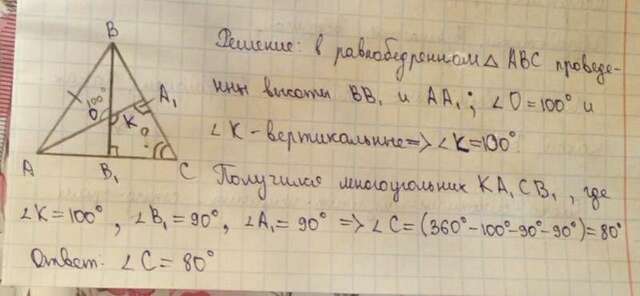 B
Решение: в равнобедренном △ ABC проведе-
ны высоты BB₁ и AA₁; ∠O=100° и
∠K - вертикальные => ∠K=100°.
100°
O
K
A₁
?
A
B₁
C
Получился многоугольник KA₁CB₁, где
∠K=100°, ∠B₁=90°, ∠A₁=90° => ∠C=(360°-100°-90°-90°)=80°
Ответ: ∠C=80°